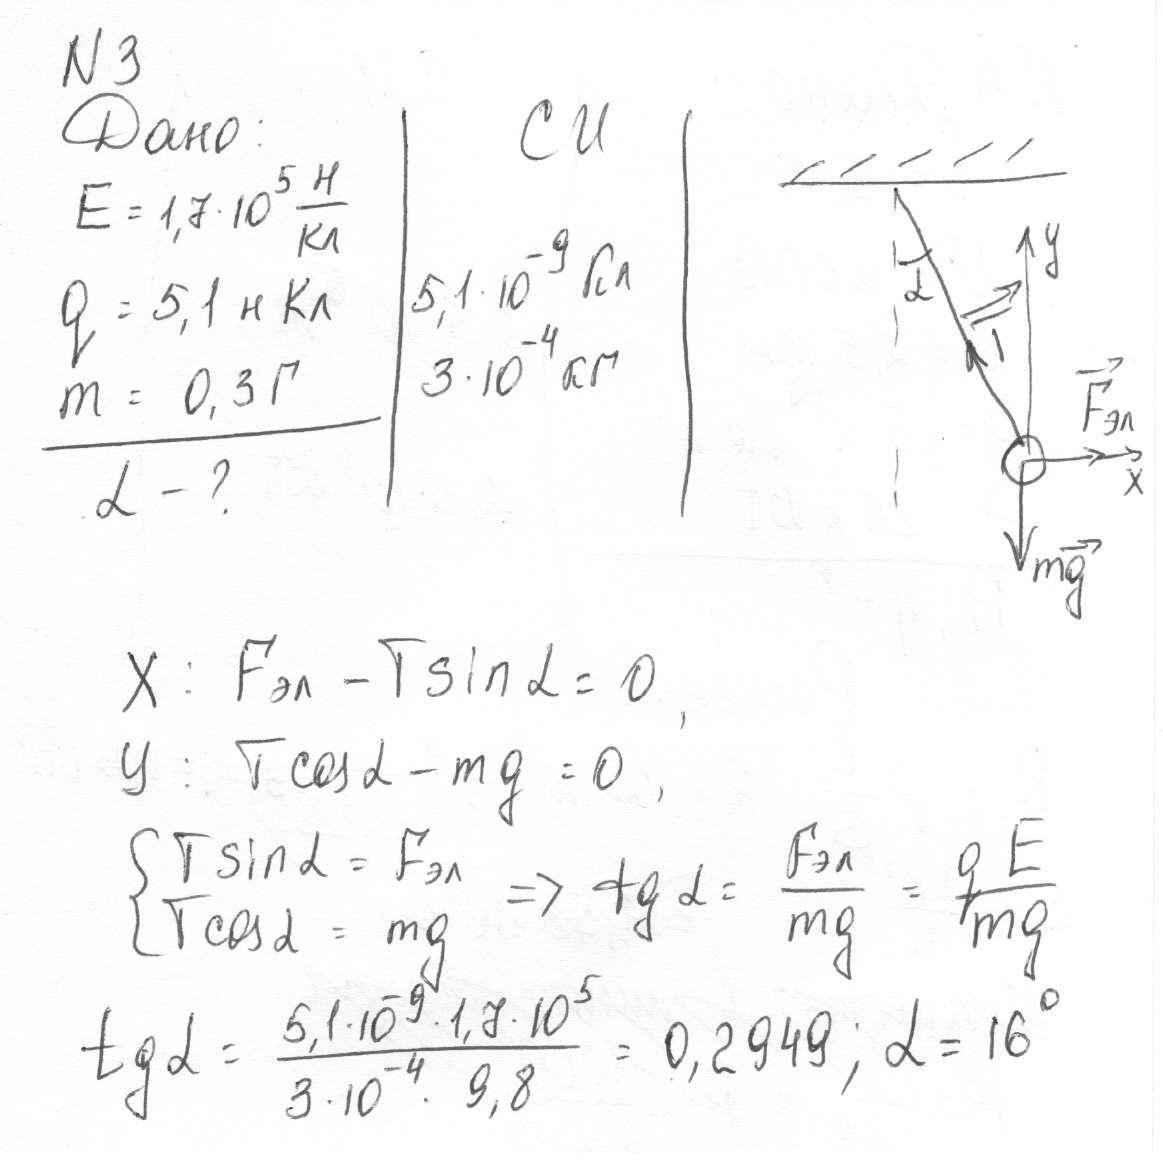 N 3
Дано:
E = 1,7·10⁵ Н/Кл
q = 5,1 нКл
m = 0,3 Г
α - ?
СИ
5,1·10⁻⁹ Кл
3·10⁻⁴ кг
α
T
y
F⃗эл
x
mg⃗
X: Fэл - T sin α = 0,
y: T cos α - mg = 0,
{ T sin α = Fэл
T cos α = mg => tg α = Fэл/mg = qE/mg
tg α = 5,1·10⁻⁹·1,7·10⁵ / 3·10⁻⁴·9,8 = 0,2949; α = 16°